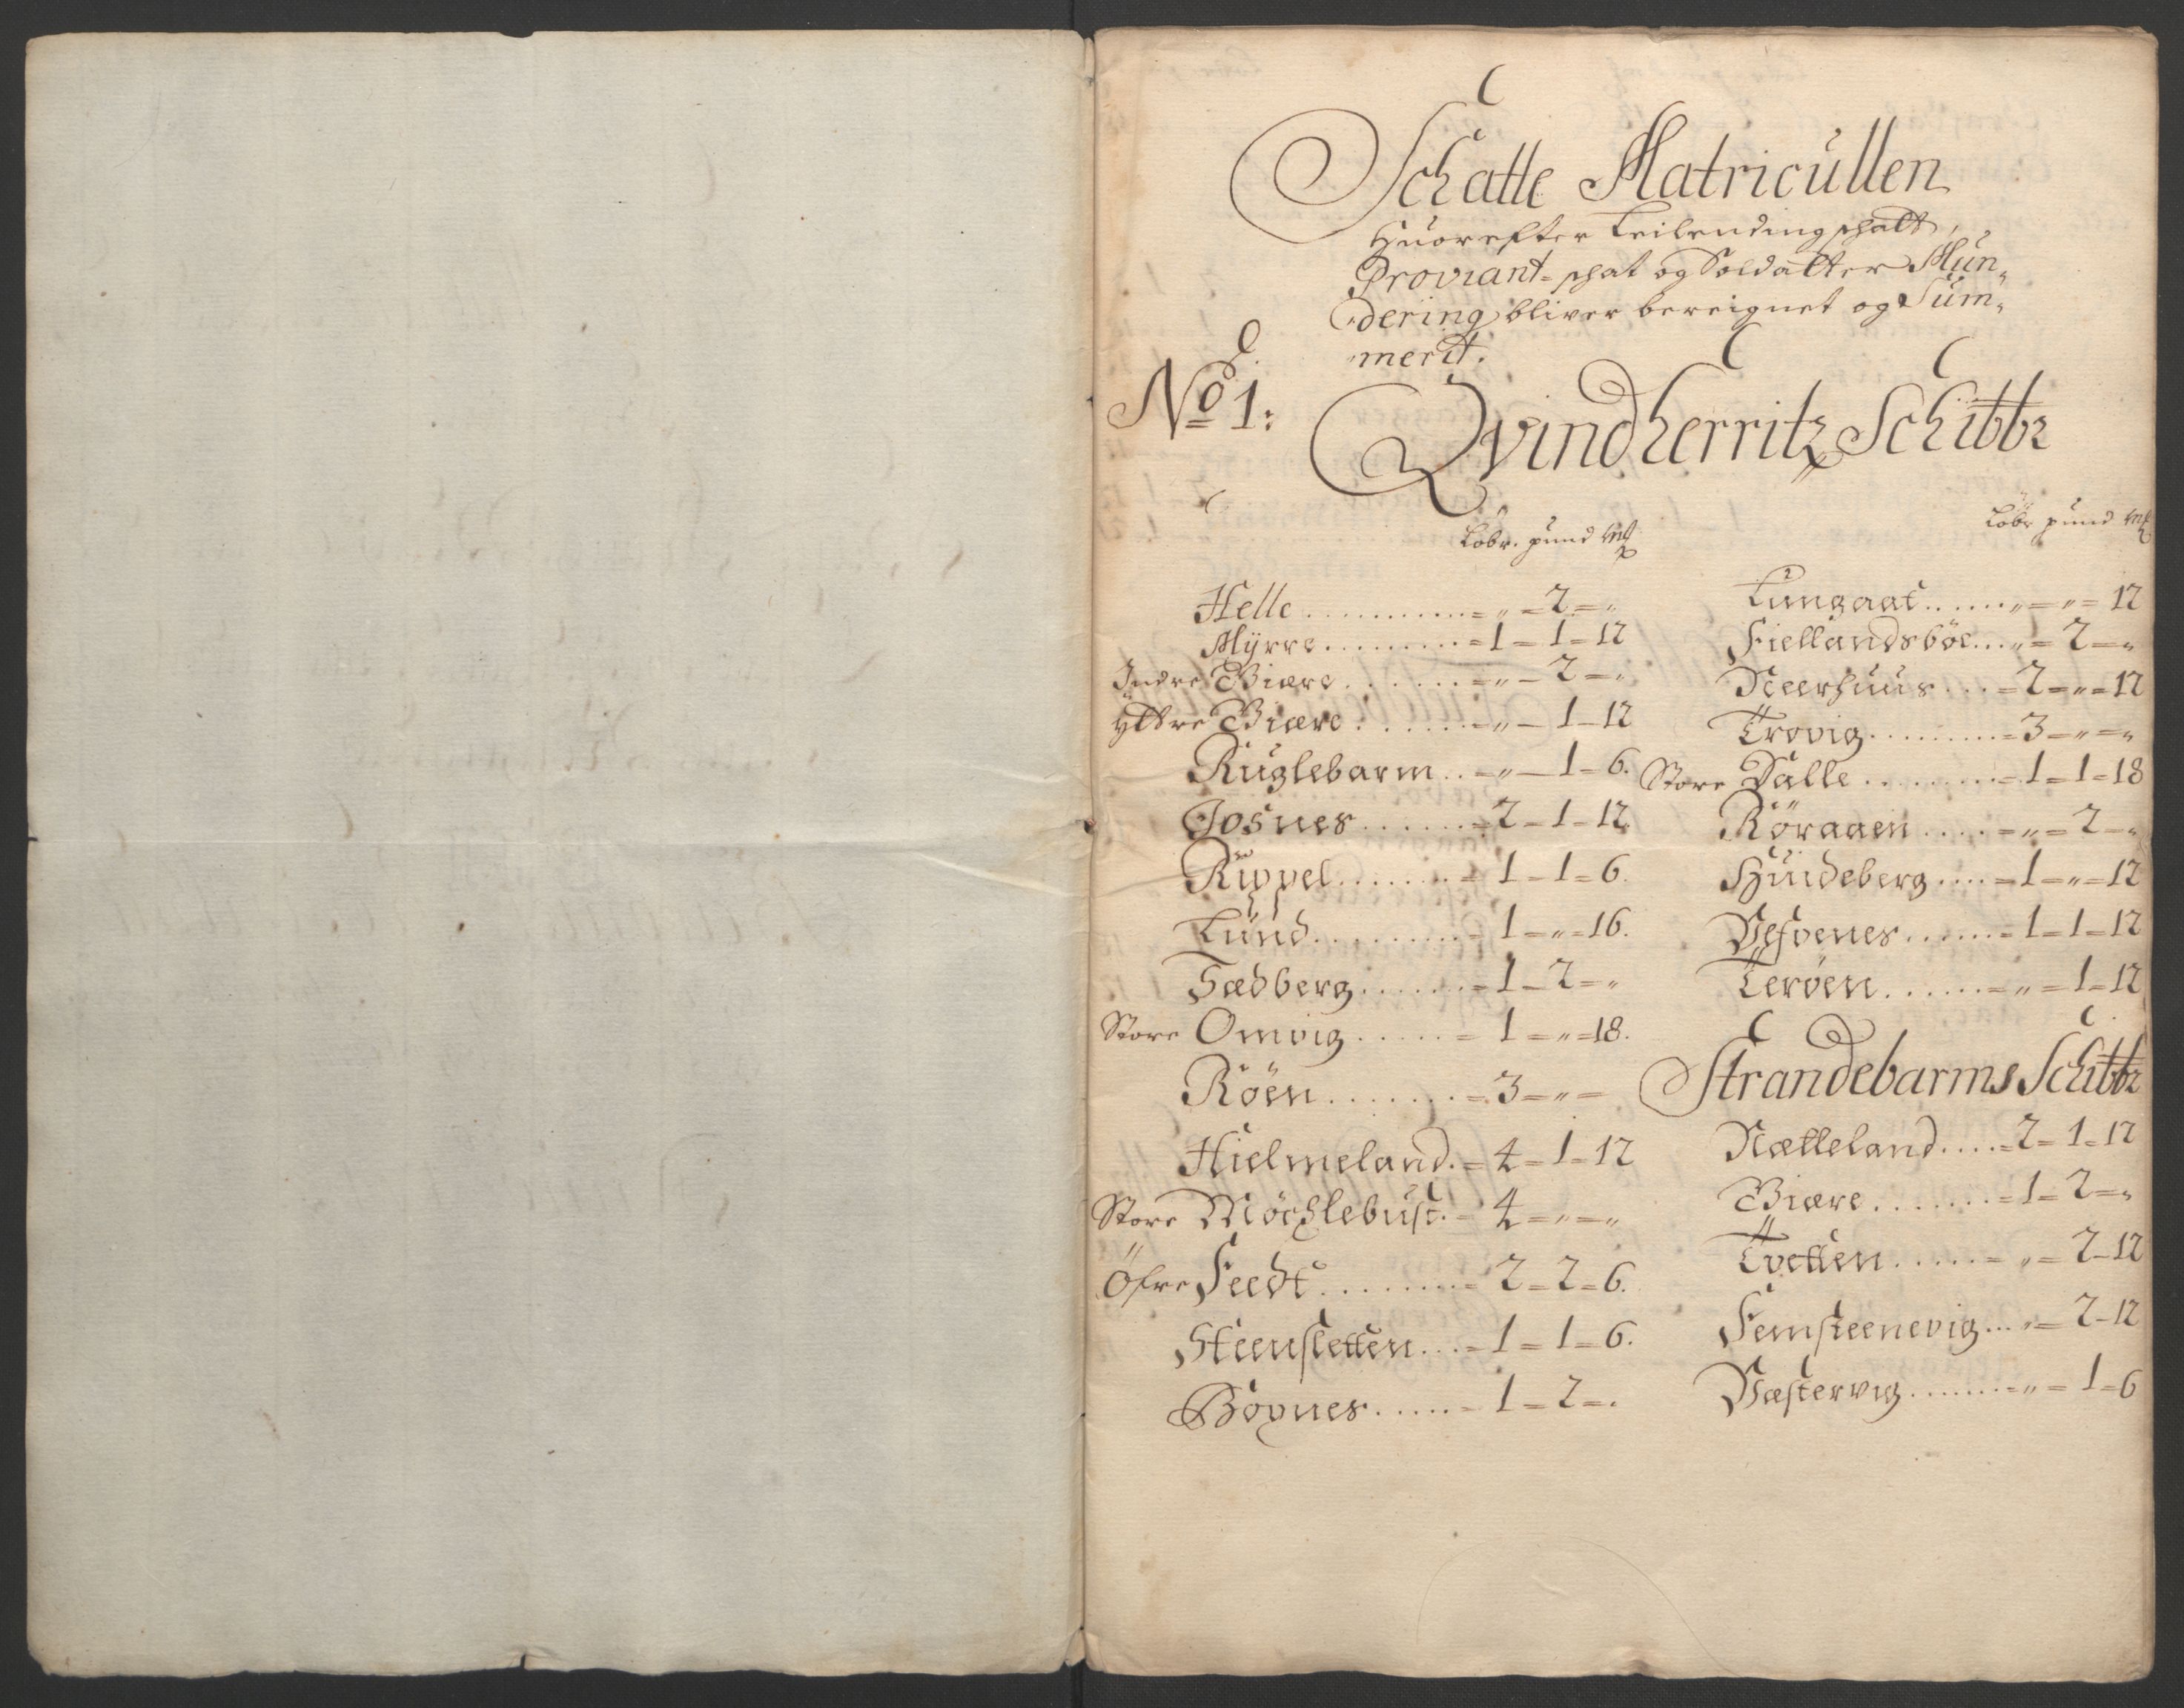 Schatte Matricullen
Huorefter Leilending schatt,
Proviant=schat og Soldatter Mun„
dering bliver bereignet og Sum„
merit.
No 1:
Qvindherritz Schibbr
Löbr. pund mk
Helle ........... = „ = 2 = „
Mÿrre ......... = 1 = 1 = 12
Indre Biære ....... = „ = 2 = „
ÿttre Biære ...... = „ = 1 = 12
Ruglebarm .. = „ = 1 = 6.
Josnes ...... = 2 = 1 = 12
Rippel ....... = 1 = 1 = 6.
Lund .......... = 1 = „ = 16.
Sædberg ...... = 1 = 2 = „
Store Omvig ..... = 1 = „ = 18.
Röen ....... = 3 = „ =
Hielmeland. = 4 = 1 = 12
Store Möchlebust. = 4 = „ = „
Öfre Seedt ........ = 2 = 2 = 6.
Steensletten ... = 1 = 1 = 6.
Bognes ..... = 1 = 2 = „
Löbr pund mk
Lungaat ...... „ = „ = 12
Fiellandsböe ... „ = 2 = „
Neerhuus ... = 2 = „ = 12
Trovig ......... = 3 = „ = „
Store Dalle ......... = 1 = 1 = 18
Röraaen .... = „ = 2 = „
Huideberg .... = 1 = „ = 12
Vefvenes ...... = 1 = 1 = 12
Teröen ...... = „ = 1 = 12
Strandebarms Schibbr
Nætteland .... = 2 = 1 = 12
Biære ....... = 1 = 2 = „
Tvetten ..... = „ = 2 = 12
Femsteenevig ... „ = 2 = 12
Væstervig ....... = „ = 1 = 6